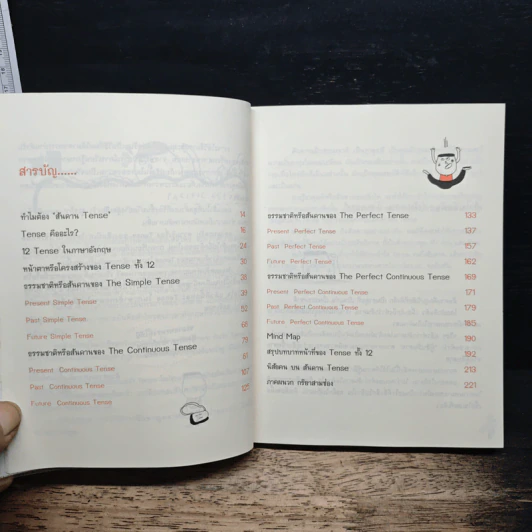 สารบัญ......
ทำไมต้อง "สันดาน Tense" 14
Tense คืออะไร? 16
12 Tense ในภาษาอังกฤษ 24
หน้าตาหรือโครงสร้างของ Tense ทั้ง 12 30
ธรรมชาติหรือสันดานของ The Simple Tense 38
Present Simple Tense 39
Past Simple Tense 52
Future Simple Tense 66
ธรรมชาติหรือสันดานของ The Continuous Tense 79
Present Continuous Tense 81
Past Continuous Tense 107
Future Continuous Tense 125
ธรรมชาติหรือสันดานของ The Perfect Tense 133
Present Perfect Tense 137
Past Perfect Tense 157
Future Perfect Tense 162
ธรรมชาติหรือสันดานของ The Perfect Continuous Tense 169
Present Perfect Continuous Tense 171
Past Perfect Continuous Tense 179
Future Perfect Continuous Tense 185
Mind Map 190
สรุปบทบาทหน้าที่ของ Tense ทั้ง 12 192
นิสัยคน บน สันดาน Tense 213
ภาคผนวก กริยาสามช่อง 221